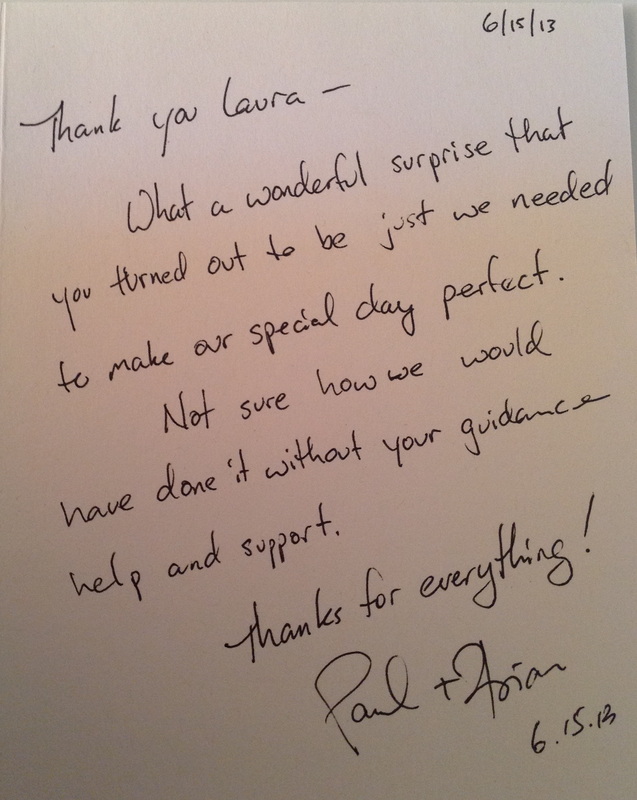 6/15/13
Thank you Laura –
What a wonderful surprise that
you turned out to be just we needed
to make our special day perfect.
Not sure how we would
have done it without your guidance
help and support.
Thanks for everything!
Paul + Arian
6.15.13